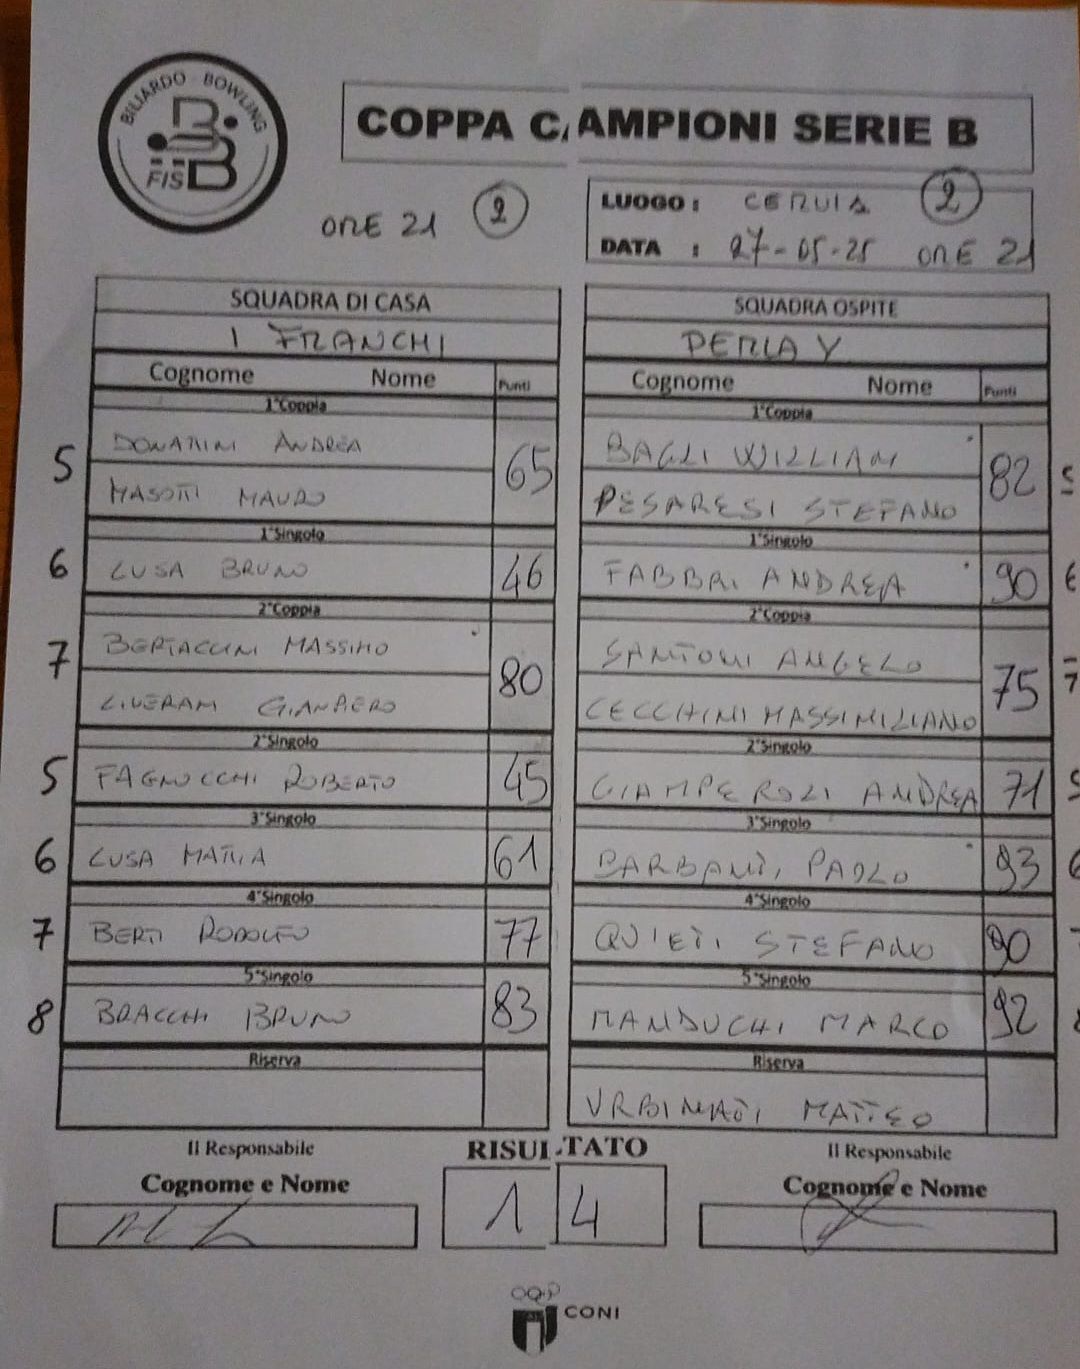 BILIARDO BOWLING
FISBB
COPPA CAMPIONI SERIE B
ORE 21 2
LUOGO : CERVIA 2
DATA : 27-05-25 ORE 21
SQUADRA DI CASA
I FRANCHI
Cognome Nome Punti
1°Coppia
5 DONATINI ANDREA 65
MASOTTI MAURO
1°Singolo
6 LUSA BRUNO 46
2°Coppia
7 BERTACCINI MASSIMO 80
LIVERANI GIANPIERO
2°Singolo
5 FAGNOCCHI ROBERTO 45
3°Singolo
6 LUSA MATTIA 61
4°Singolo
7 BERTI RODOLFO 77
5°Singolo
8 BRACCHI BRUNO 83
Riserva
Il Responsabile
Cognome e Nome
SQUADRA OSPITE
PERLA Y
Cognome Nome Punti
1°Coppia
BAGLI WILLIAM 82 5
PESARESI STEFANO
1°Singolo
FABBRI ANDREA 90 6
2°Coppia
SANTONI ANGELO 75 7
CECCHINI MASSIMILIANO
2°Singolo
GIAMPEROLI ANDREA 71 5
3°Singolo
BARBANTI PAOLO 93 6
4°Singolo
QUIETI STEFANO 90
5°Singolo
MANDUCHI MARCO 92 8
Riserva
URBINATI MATTEO
Il Responsabile
Cognome e Nome
RISULTATO
1 4
CONI